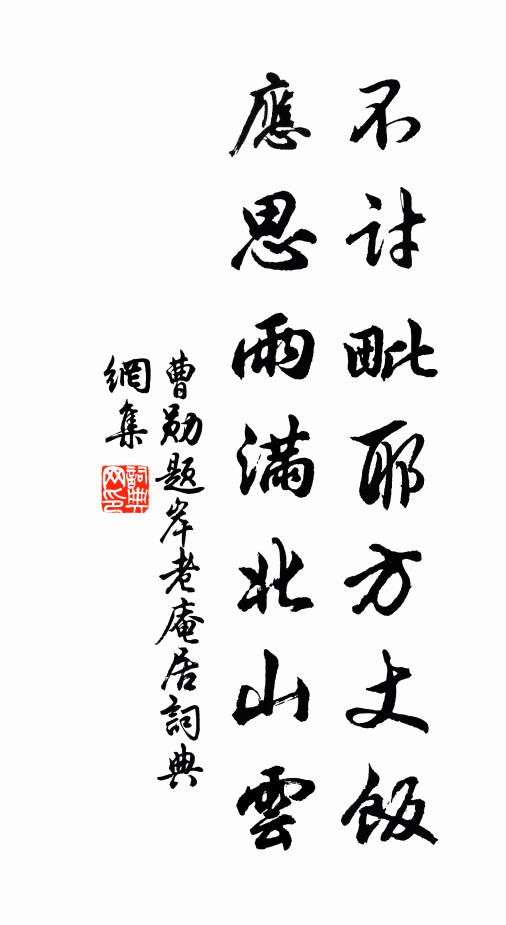 不討毗耶方丈飯
應思雨滿北山雲
曹勛題岸老庵居詞典
網集
詞典網印